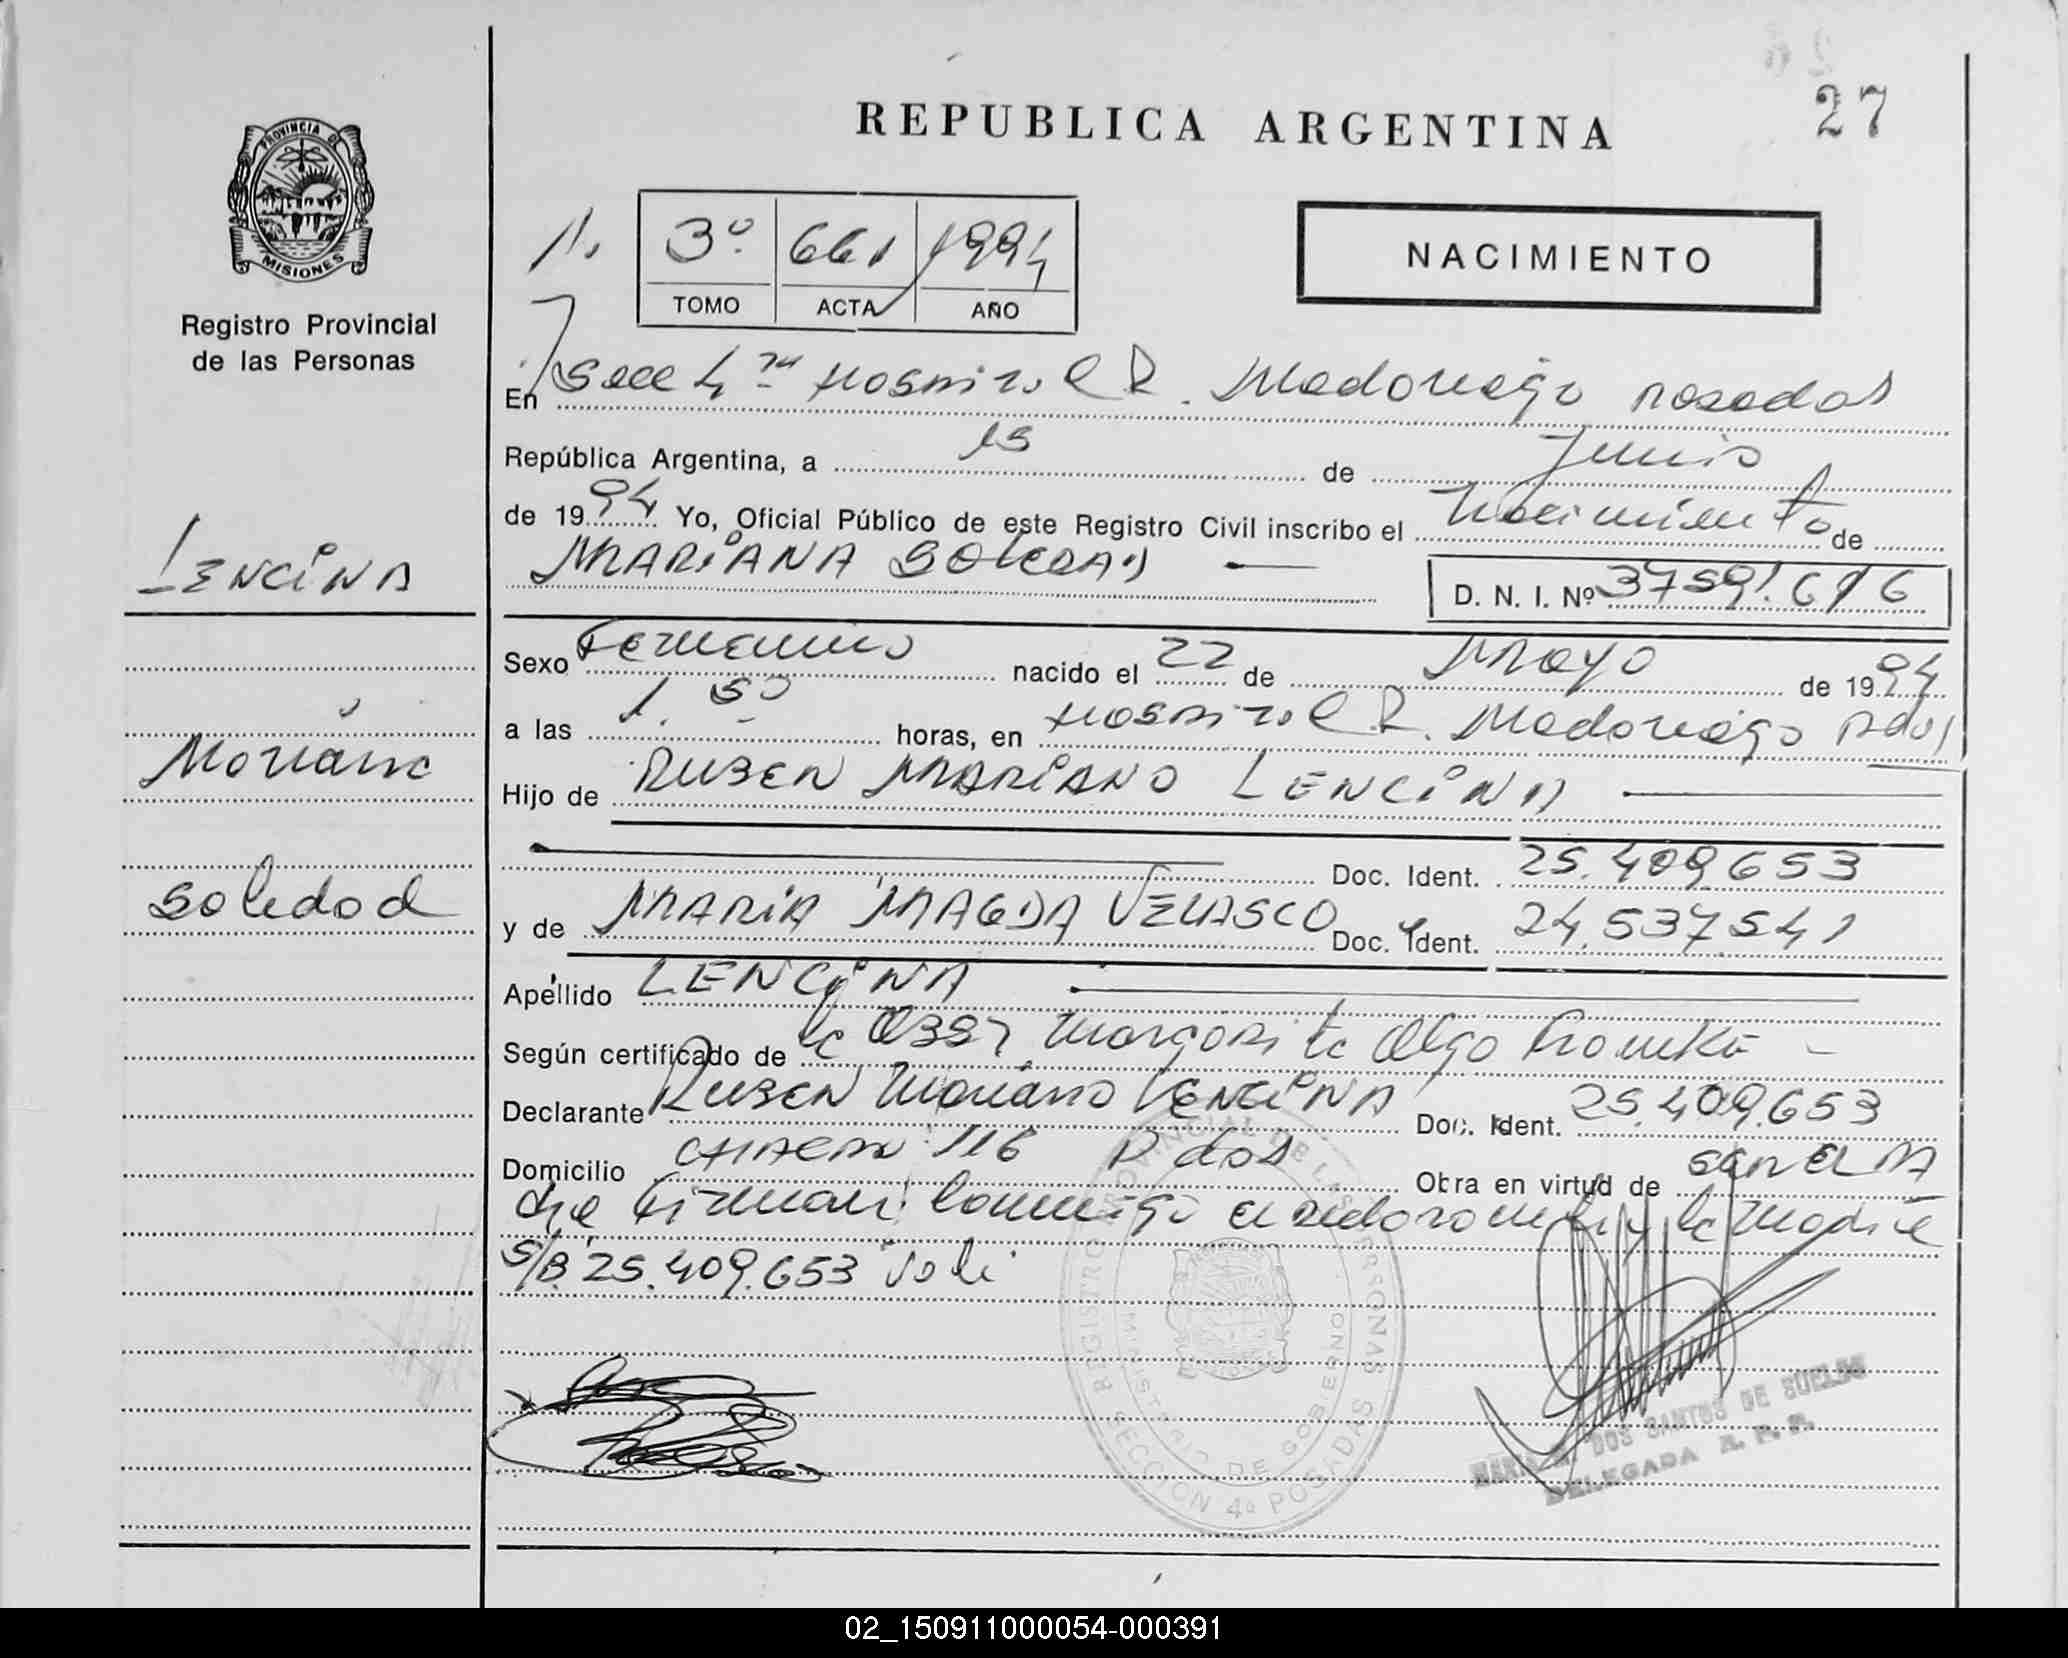 REPUBLICA ARGENTINA
27
PROVINCIA DE
MISIONES
Registro Provincial
de las Personas
3º 661 1994
TOMO ACTA AÑO
NACIMIENTO
En Secc 4ta Hospital R. Madariaga Posadas
República Argentina, a 15 de Junio
de 1994 Yo, Oficial Público de este Registro Civil inscribo el Nacimiento de
MARIANA SOLEDAD
D. N. I. Nº 37591.616
LENCINA
Mariana
Soledad
Sexo Femenino nacido el 22 de Mayo de 1994
a las 1.50 horas, en Hospital R. Madariaga Pdas
Hijo de RUBEN MARIANO LENCINA
Doc. Ident. 25.409.653
y de MARIA MAGDA VELASCO Doc. Ident. 24.537541
Apellido LENCINA
Según certificado de la Obst Margarita Olga
Declarante RUBEN Mariano LENCINA Doc. Ident. 25.409.653
Domicilio 116 Pdas Obra en virtud de
que firman conmigo el declarante y la madre
S/B. 25.409.653 Vale
REGISTRO PROVINCIAL DE LAS PERSONAS
MINISTERIO DE GOBIERNO
SECCION 4ª POSADAS
MARIA DOS SANTOS DE BUELDO
DELEGADA R. P. P.
02_150911000054-000391